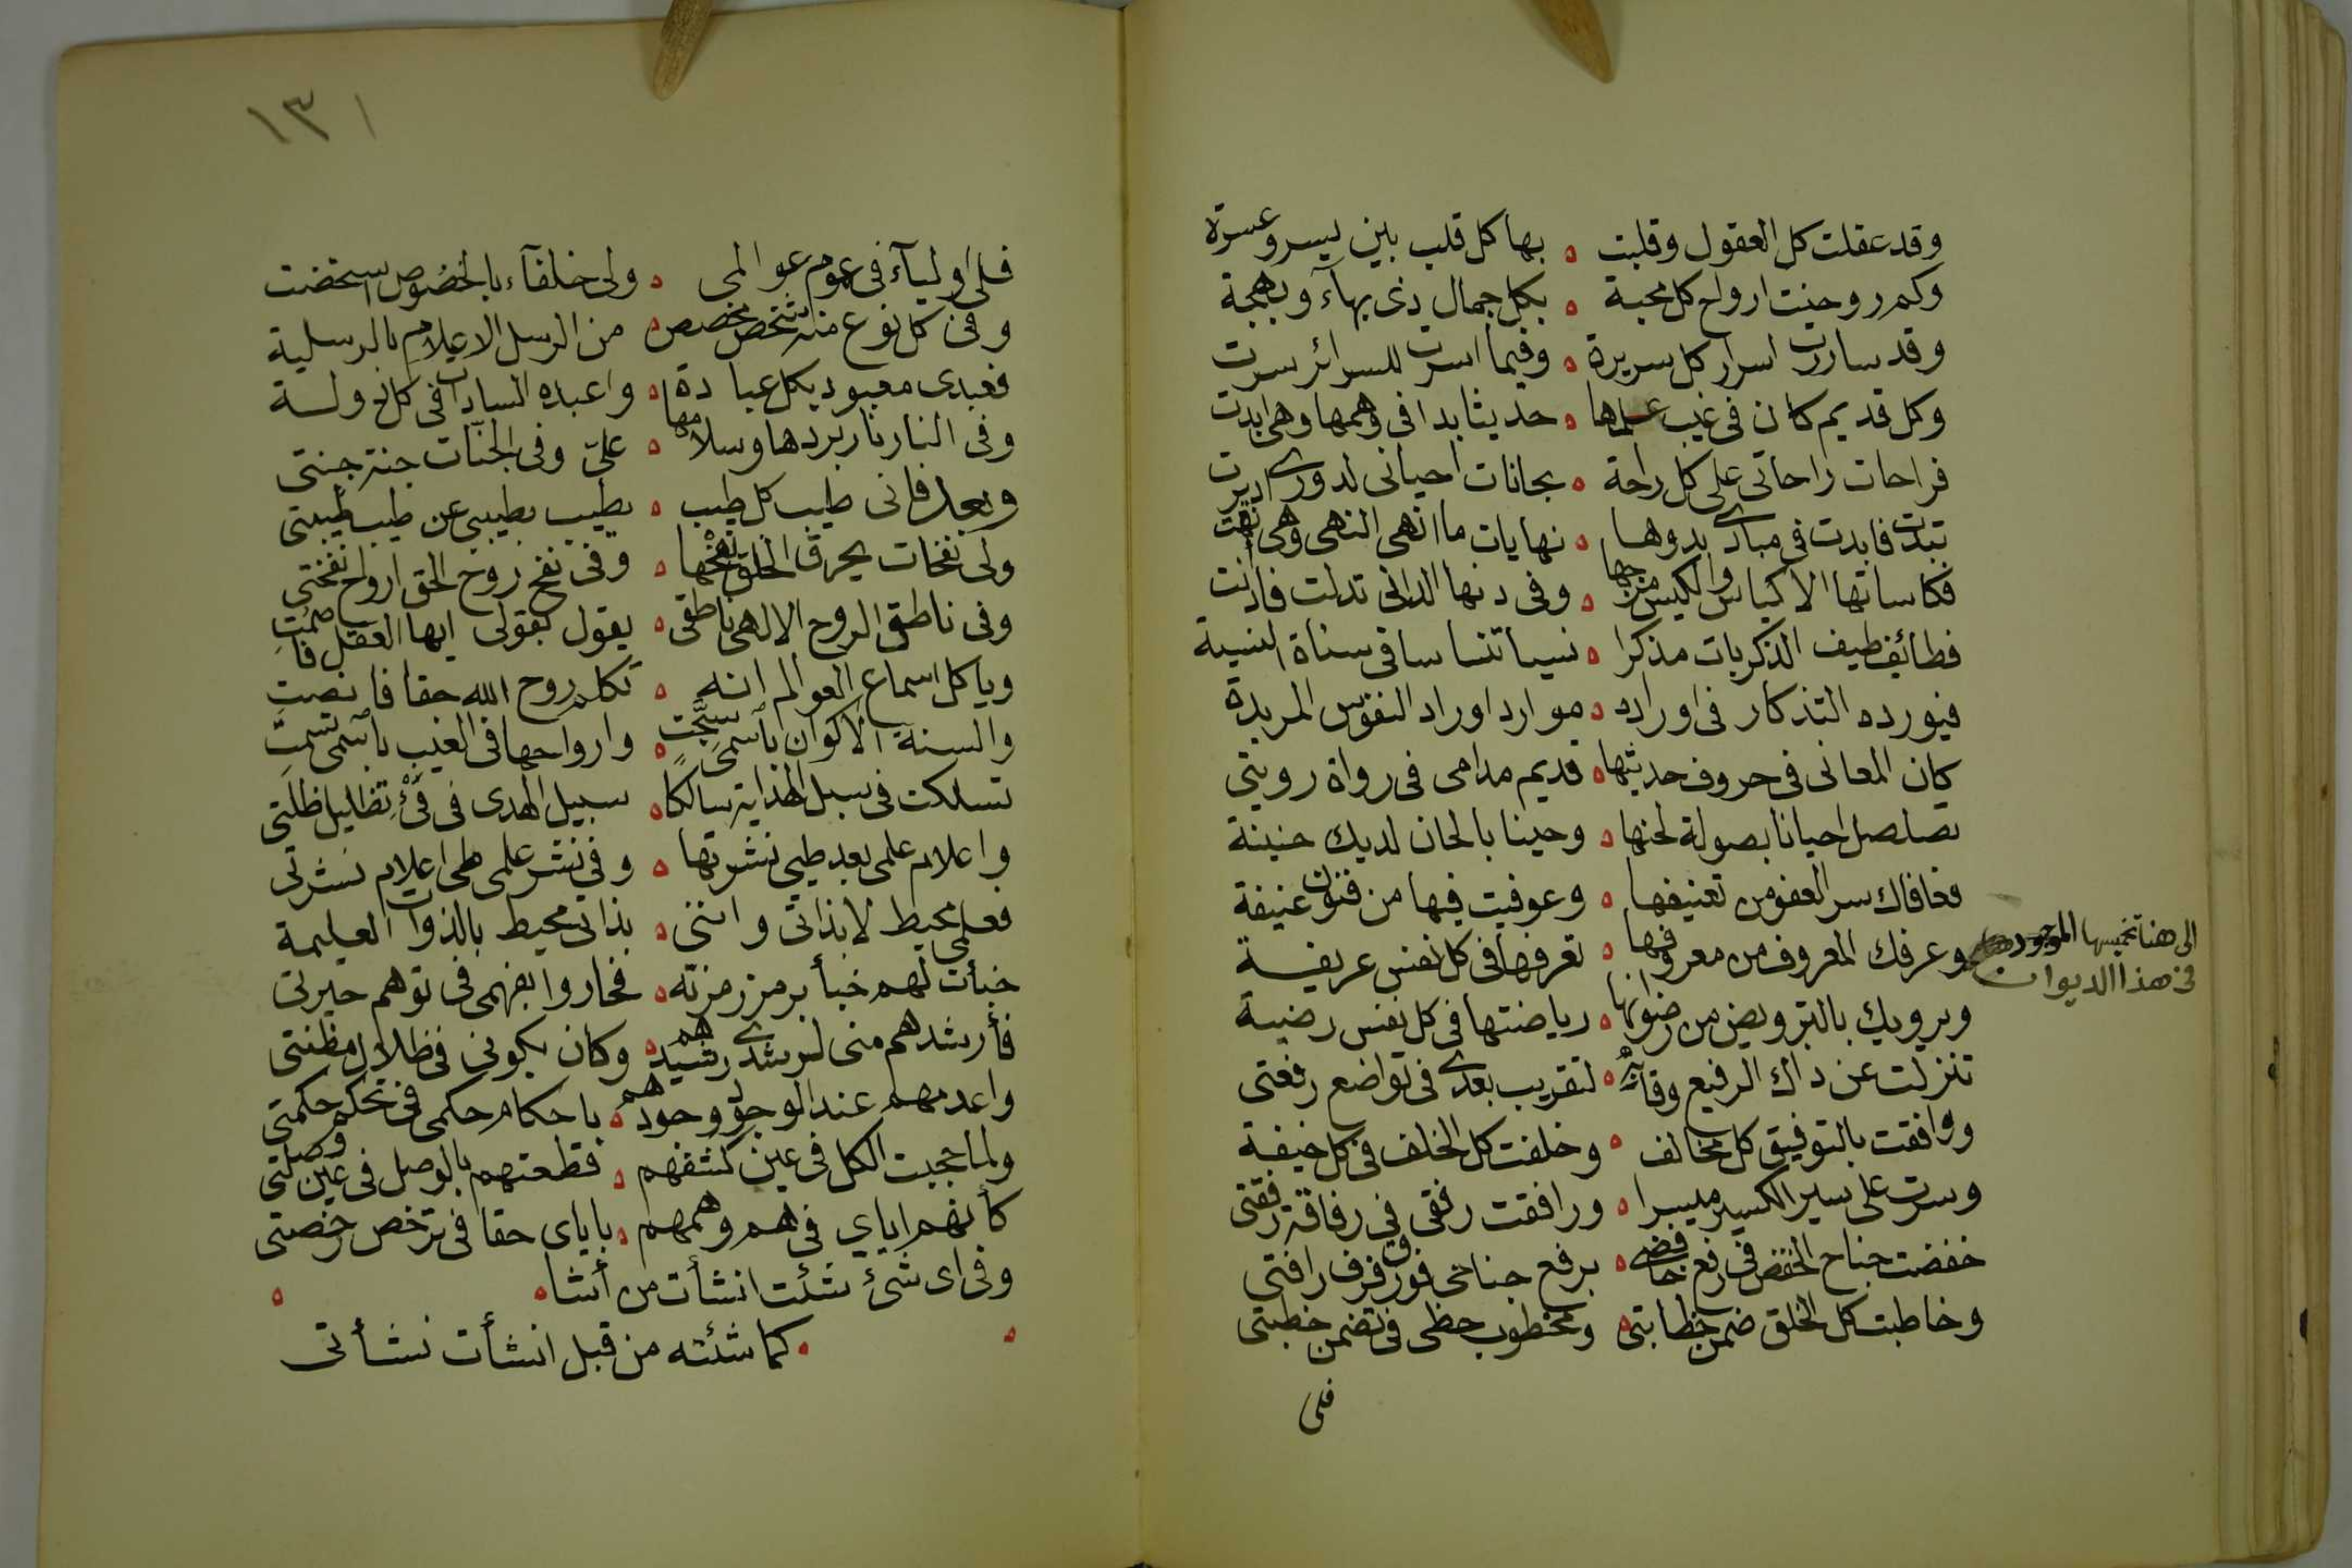 وقد عقلت كل العقول وقلبت ه بها كل قلب بين يسر وعسرة
وكم روحنت ارواح كل محبة ه بكل جمال ذى بهآء وبهجة
وقد ساررت اسرار كل سريرة ه وفيما اسرت للسرائر سرت
وكل قديم كان فى غيب علمها ه حديثا بدا فى وهمها وهى ابدت
فراحات راحاتى على كل راحة ه بحانات احيانى لدورى اديرت
تبدت فابدت فى مبادى بدوها ه نهايات ما انهى النهى وهى نهت
فكاساتها الاكياس والكيس مزجها ه وفى دنها الدانى تدلت فادنت
فطائف طيف الذكريات مذكرا ه نسيا تنسا ساقى سناة السنية
فيورده التذكار فى اوراده ه موارد اوراد النفوس المريدة
كان المعانى فى حروف حديثها ه قديم مدامى فى رواة رويتى
تصلصل احيانا بصولة لحنها ه وحينا بالحان لديك حنينة
فعافاك سر العفو من تعنيفها ه وعوفيت فيها من فنون عنيفة
وعرفك المعروف من معروفها ه تعرفها فى كل نفس عريفة
الى هنا تخميسها الموجود
فى هذا الديوان
ويرويك بالترويض من رضوانها ه رياضتها فى كل نفس رضية
تنزلت عن ذاك الرفيع وقاية ه لتقريب بعدى فى تواضع رفعتى
ووافقت بالتوفيق كل مخالف ه وخلفت كل الخلف فى كل خيفة
وسرت على سير الكسير ميسرا ه ورافقت رفقى فى رفاقة رفقتى
خفضت جناح الخفض فى رفع خافضى ه برفع جناحى فوق رفرف رافتى
وخاطبت كل الخلق ضمن خطابتى ه ومخطوب حظى فى تضمن خطبتى
فلى
١٣١
فلى اوليآء فى عموم عوالمى ه ولى خلفآء بالخصوص استخضت
وفى كل نوع منه شخص مخصص ه من الرسل الاعلام بالرسلية
فعبدى معبود بكل عبادة ه واعبده السادات فى كل دولة
وفى النار نار بردها وسلامها ه علىّ وفى الجنات جنة جنتى
وبعد فانى طيب كل طيب ه يطيب بطيبى عن طيب طيبتى
ولى نفخات يحرق الخلق نفخها ه وفى نفخ روح الحق ارواح نفختى
وفى ناطق الروح الالهى ناطقى ه يقول بقولى ايها العقل فاصمت
ويا كل اسماع العوالم انه ه تكلم روح الله حقا فانصت
والسنة الاكوان باسمى سبّحت ه وارواحها فى الغيب باسمى تسمت
تسلكت فى سبل الهداية سالكا ه سبيل الهدى فى فئ تظاليل ظلتى
واعلام علمى بعد طيى نشرتها ه وفى نشر علمى طى اعلام نشرتى
فعلمى محيط لا بذاتى واننى ه بذاتى محيط بالذوات العليمة
خبأت لهم خبأ برمز رمزته ه فحاروا بفهمى فى توهم حيرتى
فأرشدهم منى لرشدى رشيدهم ه وكان بكونى فى ظلال مظنتى
واعدمهم عند الوجود وجودهم ه باحكام حكمى فى تحكم حكمتى
ولما حجبت الكل فى عين كشفهم ه فقطعتهم بالوصل فى عين وصلتى
كأنهم اياي فى هم وهمهم ه باياى حقا فى ترخص رخصتى
وفى اى شئ شئت انشأت من أشا ه ه
ه كما شئته من قبل انشأت نشأتى